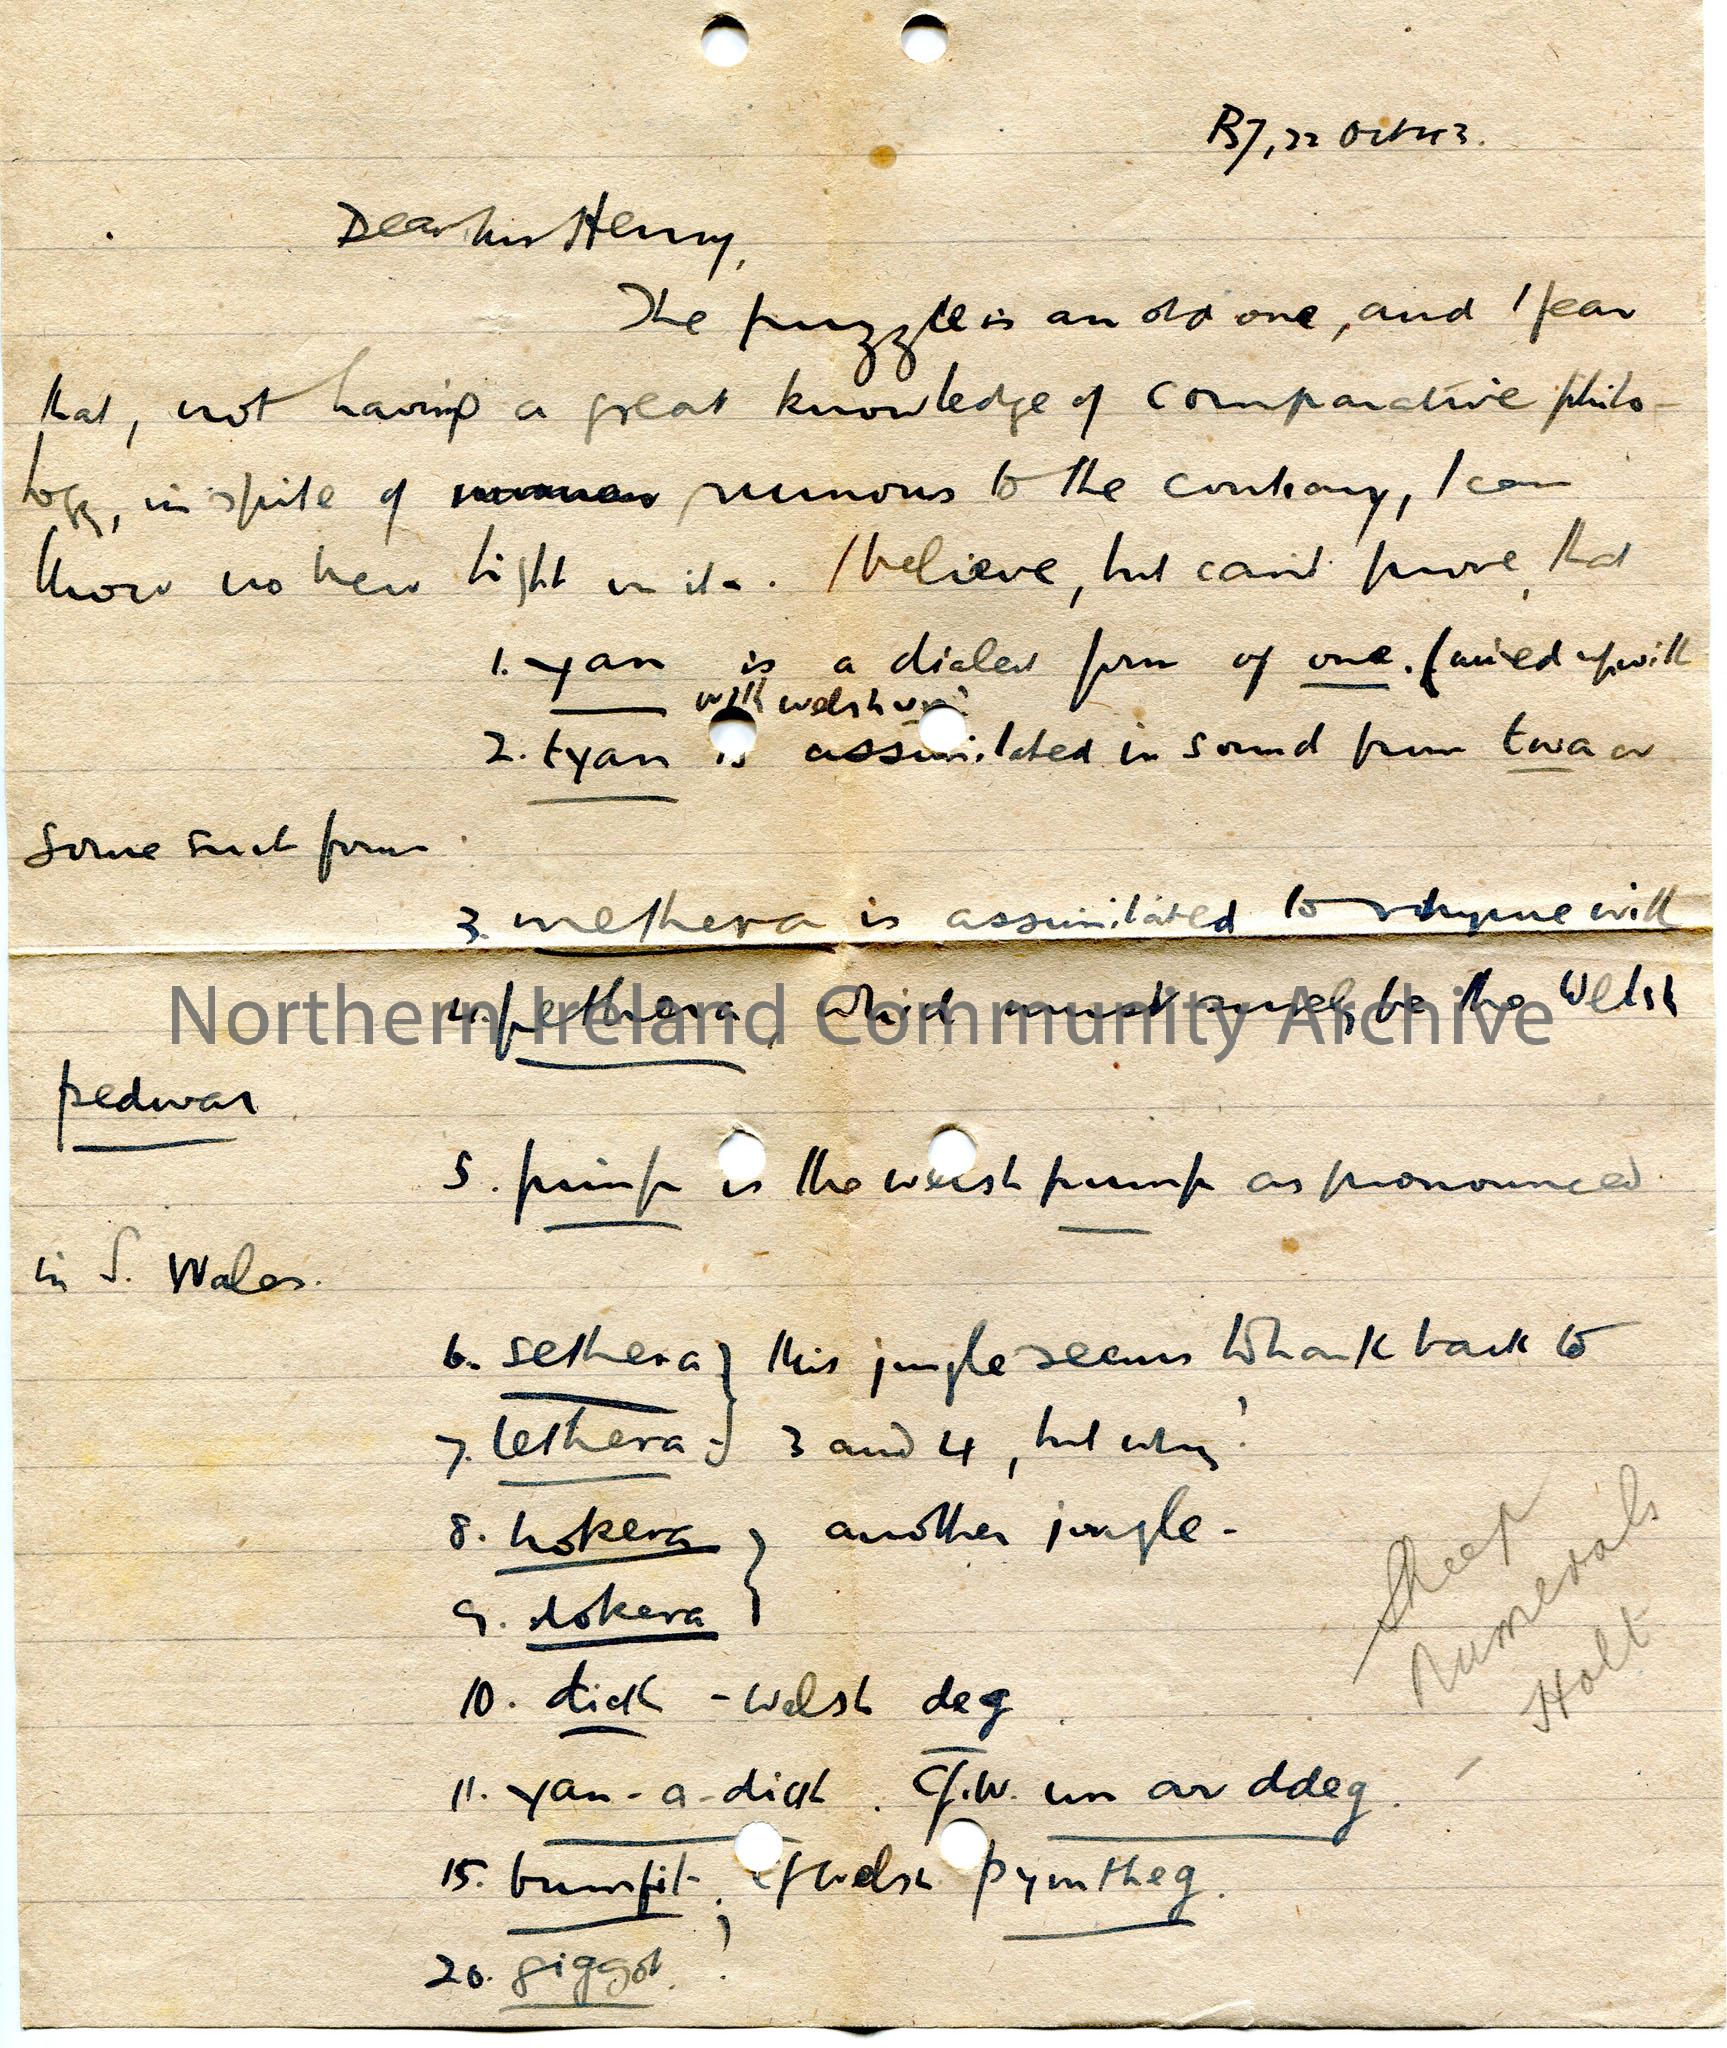 B7, 22 Oct 43.
Dear Mrs Henry,
The puzzle is an old one, and I fear
that, not having a great knowledge of comparative philo-
logy, in spite of rumours to the contrary, I can
throw no new light on it. I believe, but can't prove, that
1. yan is a dialect form of one. (mixed up with
with welsh un?
2. tyan is assimilated in sound from twa or
some such form
3. methera is assimilated to rhyme with
4. pethera, which must surely be the Welsh
pedwar
5. pimp is the welsh pump as pronounced
in S. Wales.
6. sethera } this jingle seems to hark back to
7. lethera } 3 and 4, but why?
8. hokera } another jingle -
9. dokera
10. dick - welsh deg
11. yan-a-dick. Cf. W. un ar ddeg.
15. bumfit; cf Welsh pymtheg.
20. giggot.
Sheep
Numerals
Holt
Northern Ireland Community Archive